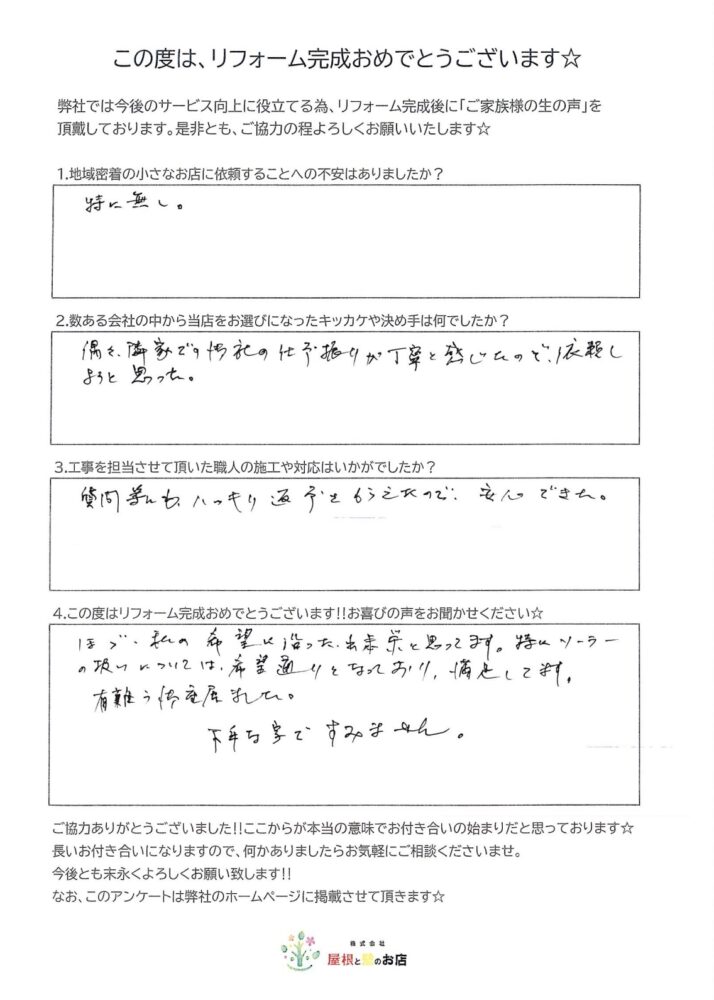 この度は、リフォーム完成おめでとうございます☆
弊社では今後のサービス向上に役立てる為、リフォーム完成後に「ご家族様の生の声」を
頂戴しております。是非とも、ご協力の程よろしくお願いいたします☆
1.地域密着の小さなお店に依頼することへの不安はありましたか？
特に無し。
2.数ある会社の中から当店をお選びになったキッカケや決め手は何でしたか？
偶々、隣家での御社の仕事振りが丁寧と感じたので、依頼し
ようと思った。
3.工事を担当させて頂いた職人の施工や対応はいかがでしたか？
質問等にも、ハッキリ返事をもらえたので、安心できた。
4.この度はリフォーム完成おめでとうございます!!お喜びの声をお聞かせください☆
ほゞ、私の希望に沿った出来栄と思ってます。特にソーラー
の扱いについては、希望通りとなっており、満足してます。
有難う御座居ました。
下手な字ですみません。
ご協力ありがとうございました!!ここからが本当の意味でお付き合いの始まりだと思っております☆
長いお付き合いになりますので、何かありましたらお気軽にご相談くださいませ。
今後とも末永くよろしくお願い致します!!
なお、このアンケートは弊社のホームページに掲載させて頂きます☆
株式会社
屋根と壁のお店